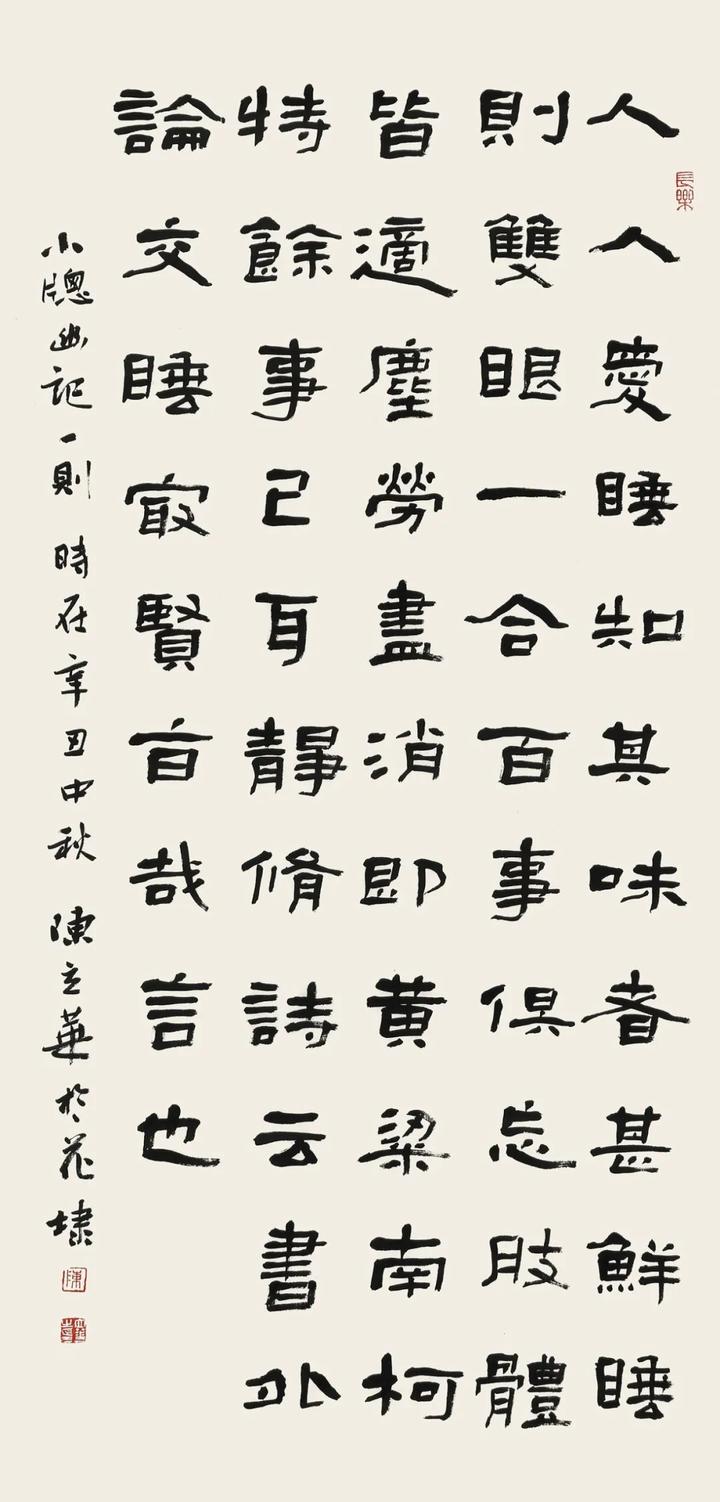 人人愛睡知其味者甚鮮睡
則雙眼一合百事俱忘肢體
皆適塵勞盡消即黃粱南柯
特餘事已耳靜脩詩云書外
論交睡冣賢旨哉言也
小牕幽記一則 時在辛丑中秋 陳立華於花埭
長樂
陳